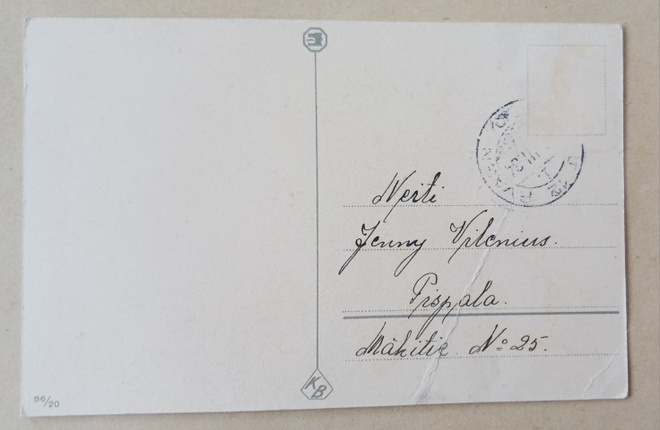 Neiti
Jenny Vilenius.
Pispala.
Mäkitie. No 25.
KB
86/20